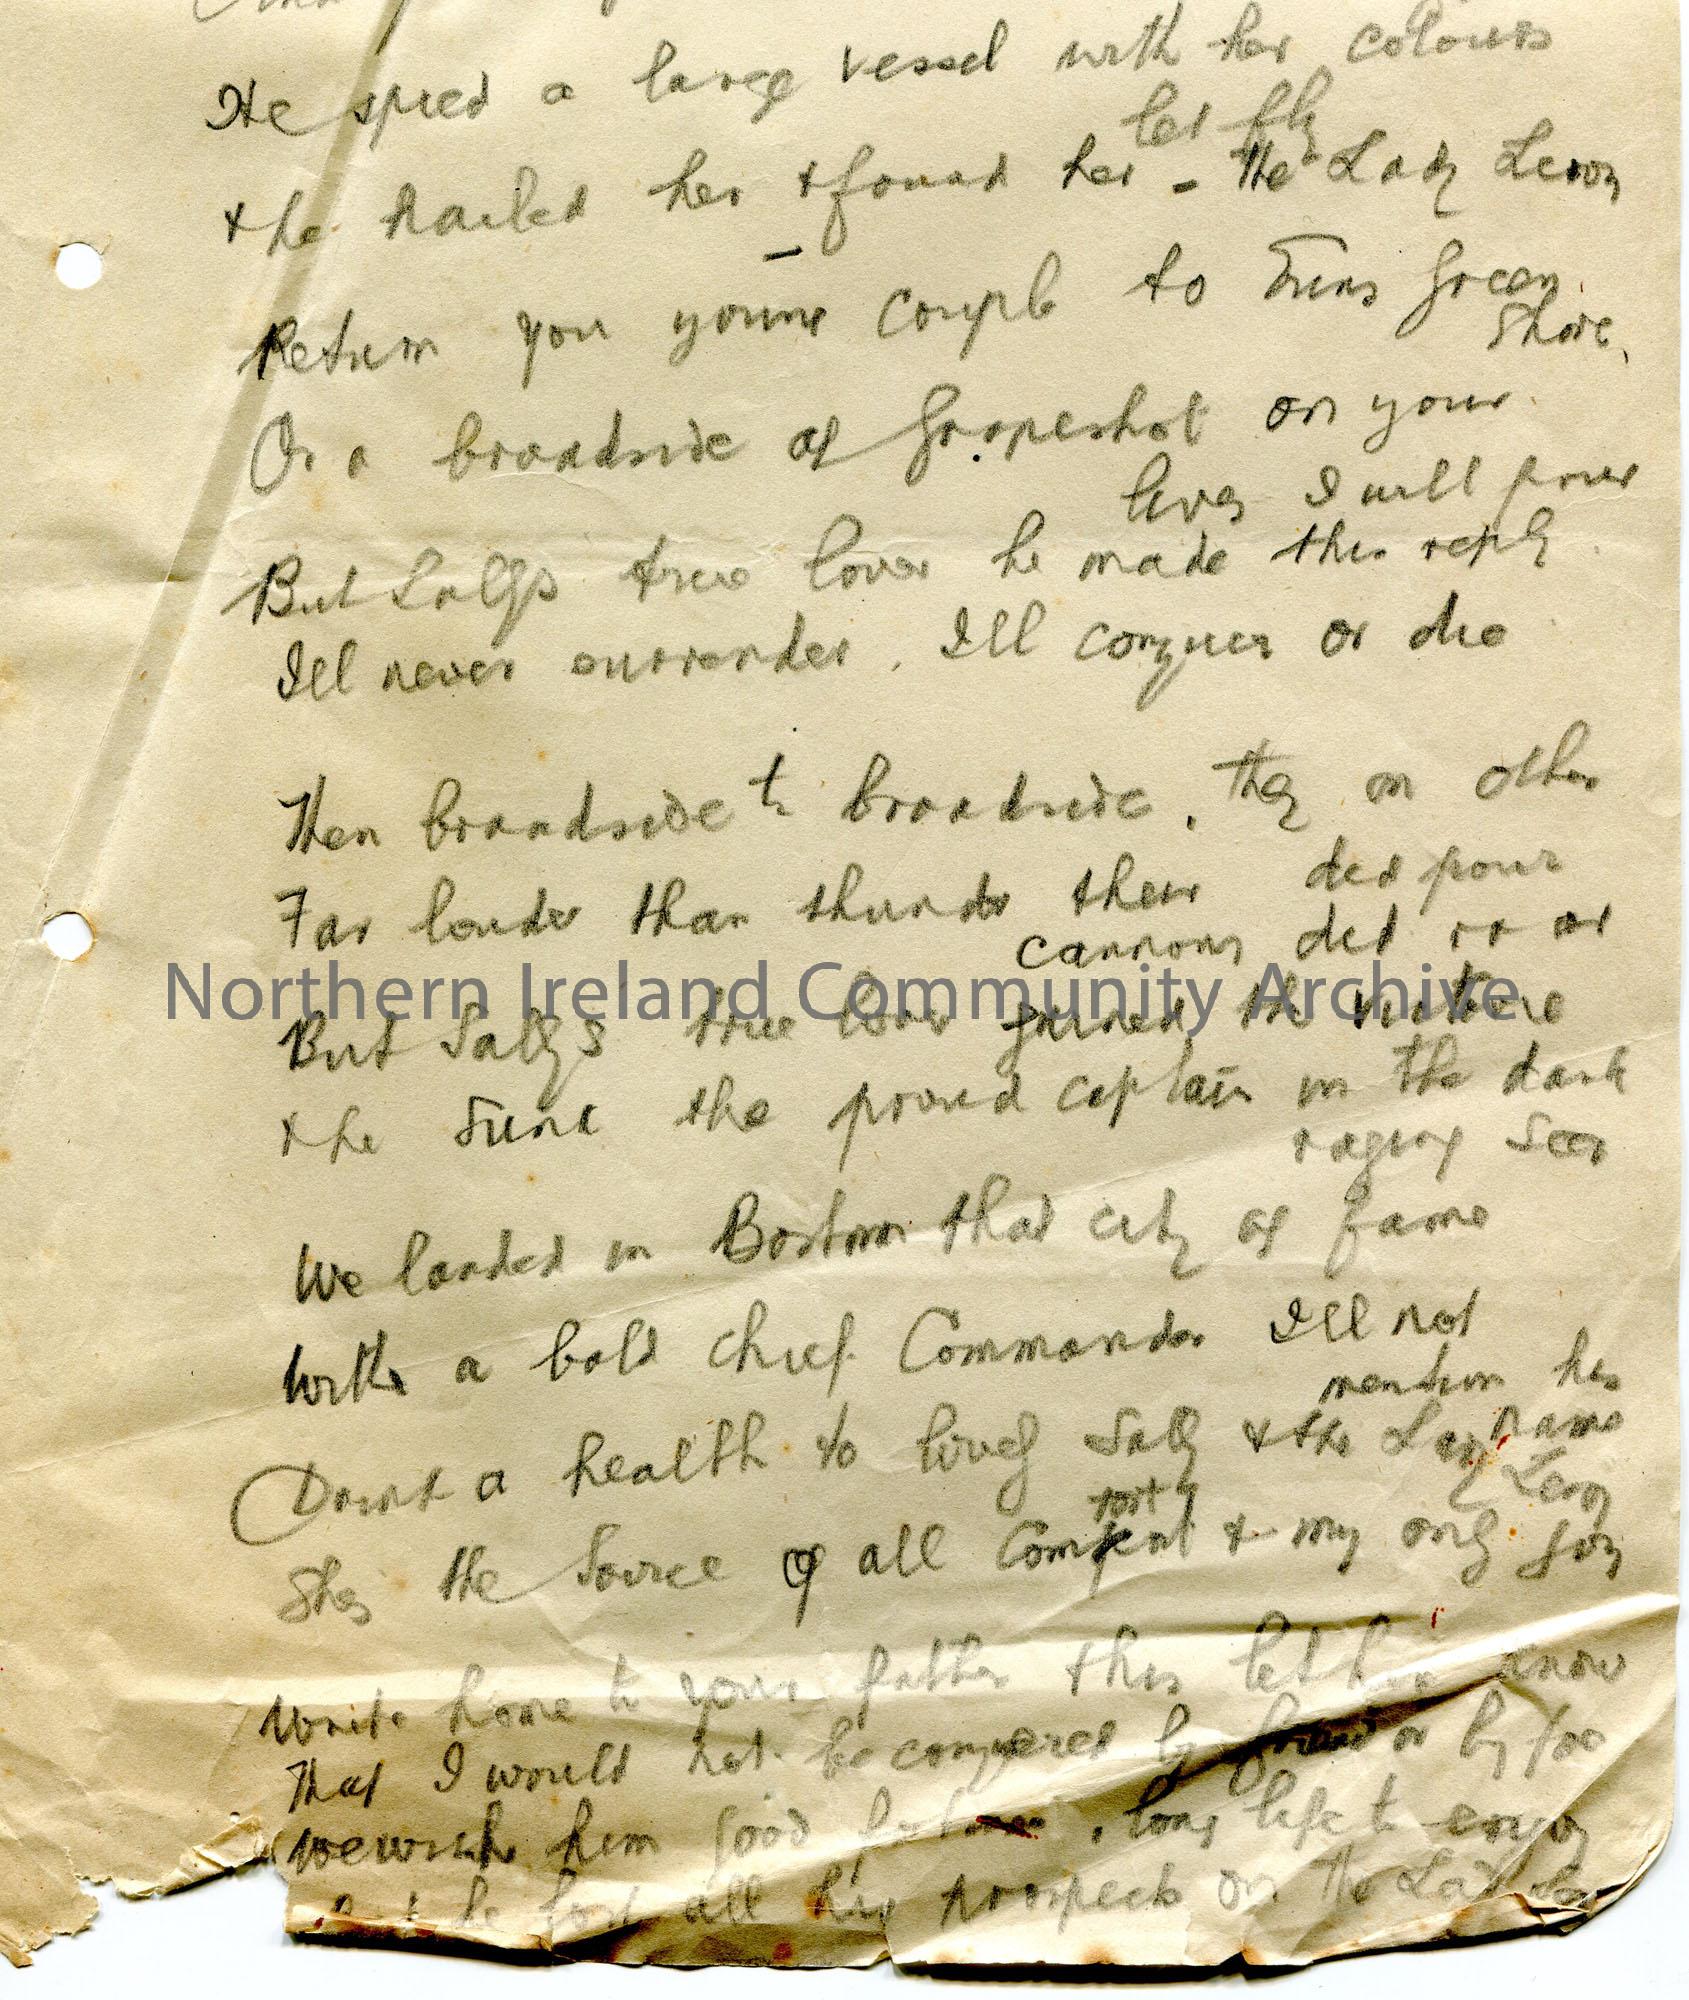 He spied a large vessel with her colours
let fly
& he hailed her & found her - the Lady Leroy
Return you young couple to Erins Green
Shore,
Or a broadside of Grapeshot on your
lives I will pour
But Sallys true lover he made this reply
Ill never surrender, Ill conquer or die
Then broadside to broadside, they on other
did pour
Far louder than thunder their
cannons did roar
But Sallys true lover gained the victore
& he Sunk the proud captain in the dark
raging Sea
We landed in Boston that city of fame
With a bold chief Commander Ill not
mention his
name
Drink a health to lovely Sally & the Lady
Leroy
Shes the Source of all Comfort & my only joy
Write home to your father this let him know
That I would not be conquered by friend or by foe
we wish him good fortune, long life to enjoy
he lost all his prospects on the Lady
Northern Ireland Community Archive